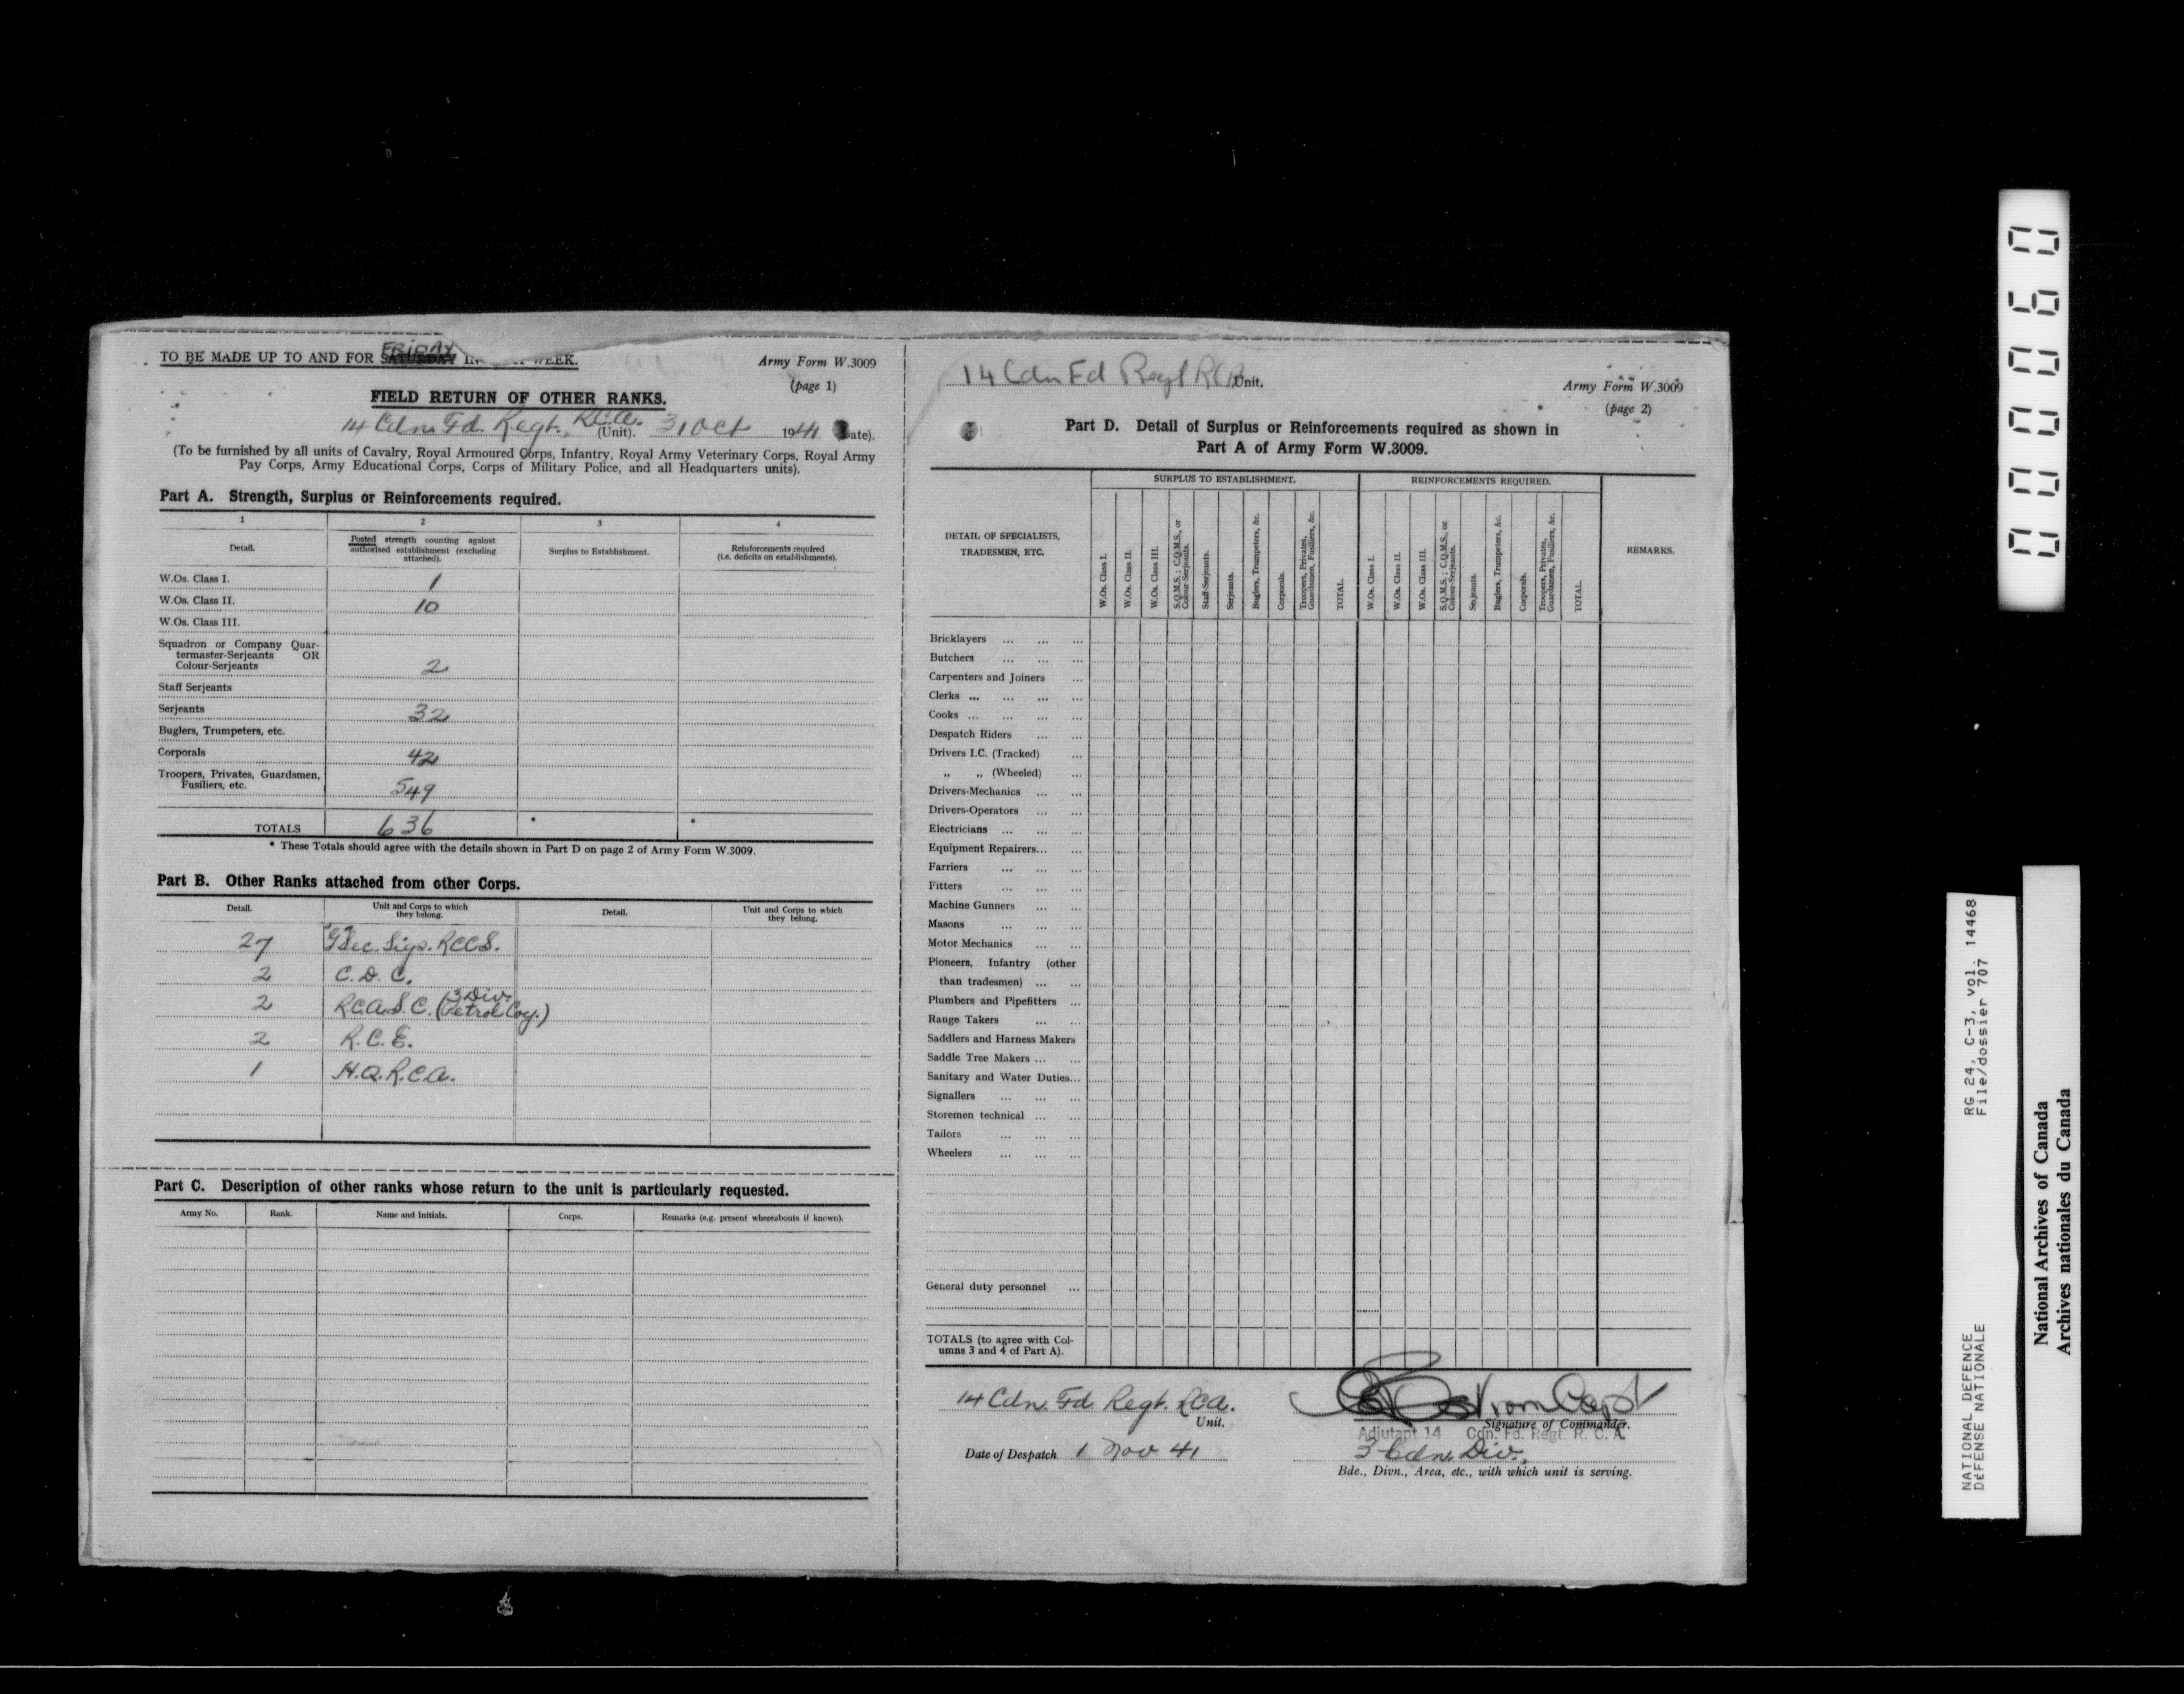 TO BE MADE UP TO AND FOR FRIDAY WEEK.
Army Form W.3009
(page 1)
FIELD RETURN OF OTHER RANKS.
14 Cdn. Fd. Regt., R.C.A. (Unit). 31 Oct 1941 (Date).
(To be furnished by all units of Cavalry, Royal Armoured Corps, Infantry, Royal Army Veterinary Corps, Royal Army
Pay Corps, Army Educational Corps, Corps of Military Police, and all Headquarters units).
Part A. Strength, Surplus or Reinforcements required.
1 2 3 4
Detail. Posted strength counting against authorised establishment (excluding attached). Surplus to Establishment. Reinforcements required (i.e. deficits on establishments).
W.Os. Class I. 1
W.Os. Class II. 10
W.Os. Class III.
Squadron or Company Quar-
termaster-Serjeants OR
Colour-Serjeants 2
Staff Serjeants
Serjeants 32
Buglers, Trumpeters, etc.
Corporals 42
Troopers, Privates, Guardsmen,
Fusiliers, etc. 549
TOTALS 636 * *
* These Totals should agree with the details shown in Part D on page 2 of Army Form W.3009.
Part B. Other Ranks attached from other Corps.
Detail. Unit and Corps to which they belong. Detail. Unit and Corps to which they belong.
27 Sec. Sigs. RCCS.
2 C.D.C.
2 R.C.A.S.C. (3 Div. Petrol Coy.)
2 R.C.E.
1 H.Q.R.C.A.
Part C. Description of other ranks whose return to the unit is particularly requested.
Army No. Rank. Name and Initials. Corps. Remarks (e.g. present whereabouts if known).
14 Cdn Fd Regt RCA Unit.
Army Form W.3009
(page 2)
Part D. Detail of Surplus or Reinforcements required as shown in
Part A of Army Form W.3009.
DETAIL OF SPECIALISTS,
TRADESMEN, ETC.
SURPLUS TO ESTABLISHMENT.
W.Os. Class I.
W.Os. Class II.
W.Os. Class III.
S.Q.M.S.; C.Q.M.S., or Colour-Serjeants.
Staff-Serjeants.
Serjeants.
Buglers, Trumpeters, &c.
Corporals.
Troopers, Privates, Guardsmen, Fusiliers, &c.
TOTAL.
REINFORCEMENTS REQUIRED.
W.Os. Class I.
W.Os. Class II.
W.Os. Class III.
S.Q.M.S.; C.Q.M.S., or Colour-Serjeants.
Serjeants.
Buglers, Trumpeters, &c.
Corporals.
Troopers, Privates, Guardsmen, Fusiliers, &c.
TOTAL.
REMARKS.
Bricklayers ... ... ...
Butchers ... ... ...
Carpenters and Joiners ...
Clerks ... ... ... ...
Cooks ... ... ... ...
Despatch Riders ... ...
Drivers I.C. (Tracked) ...
„ „ (Wheeled) ...
Drivers-Mechanics ... ...
Drivers-Operators ... ...
Electricians ... ... ...
Equipment Repairers... ...
Farriers ... ... ...
Fitters ... ... ...
Machine Gunners ... ...
Masons ... ... ...
Motor Mechanics ... ...
Pioneers, Infantry (other
than tradesmen) ... ...
Plumbers and Pipefitters ...
Range Takers ... ...
Saddlers and Harness Makers
Saddle Tree Makers ... ...
Sanitary and Water Duties...
Signallers ... ... ...
Storemen technical ... ...
Tailors ... ... ...
Wheelers ... ... ...
General duty personnel ...
TOTALS (to agree with Col-
umns 3 and 4 of Part A).
14 Cdn. Fd. Regt. RCA.
Unit.
Date of Despatch 1 Nov 41
Capt
Signature of Commander.
Adjutant 14 Cdn. Fd. Regt. R. C. A.
3 Cdn. Div.,
Bde., Divn., Area, etc., with which unit is serving.
000060
NATIONAL DEFENCE RG 24, C-3, vol. 14468
DÉFENSE NATIONALE File/dossier 707
National Archives of Canada
Archives nationales du Canada